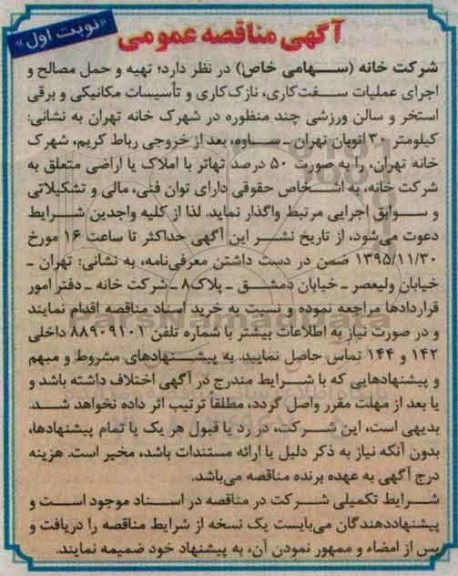 «نوبت اول»
آگهی مناقصه عمومی
شرکت خانه (سهامی خاص) در نظر دارد؛ تهیه و حمل مصالح و
اجرای عملیات سفت‌کاری، نازک‌کاری و تأسیسات مکانیکی و برقی
استخر و سالن ورزشی چند منظوره در شهرک خانه تهران به نشانی:
کیلومتر ۳۰ اتوبان تهران ـ ساوه، بعد از خروجی رباط کریم، شهرک
خانه تهران، را به صورت ۵۰ درصد تهاتر با املاک یا اراضی متعلق به
شرکت خانه، به اشخاص حقوقی دارای توان فنی، مالی و تشکیلاتی
و سوابق اجرایی مرتبط واگذار نماید. لذا از کلیه واجدین شرایط
دعوت می‌شود، از تاریخ نشر این آگهی حداکثر تا ساعت ۱۶ مورخ
۱۳۹۵/۱۱/۳۰ ضمن در دست داشتن معرفی‌نامه، به نشانی: تهران ـ
خیابان ولیعصر ـ خیابان دمشق ـ پلاک۸ ـ شرکت خانه ـ دفتر امور
قراردادها مراجعه نموده و نسبت به خرید اسناد مناقصه اقدام نمایند
و در صورت نیاز به اطلاعات بیشتر با شماره تلفن ۸۸۹۰۹۱۰۱ داخلی
۱۴۲ و ۱۴۴ تماس حاصل نمایید. به پیشنهادهای مشروط و مبهم
و پیشنهادهایی که با شرایط مندرج در آگهی اختلاف داشته باشد و
یا بعد از مهلت مقرر واصل گردد، مطلقاً ترتیب اثر داده نخواهد شد.
بدیهی است، این شرکت، در رد یا قبول هر یک یا تمام پیشنهادها،
بدون آنکه نیاز به ذکر دلیل یا ارائه مستندات باشد، مخیر است. هزینه
درج آگهی به عهده برنده مناقصه می‌باشد.
شرایط تکمیلی شرکت در مناقصه در اسناد موجود است و
پیشنهاددهندگان می‌بایست یک نسخه از شرایط مناقصه را دریافت و
پس از امضاء و ممهور نمودن آن، به پیشنهاد خود ضمیمه نمایند.